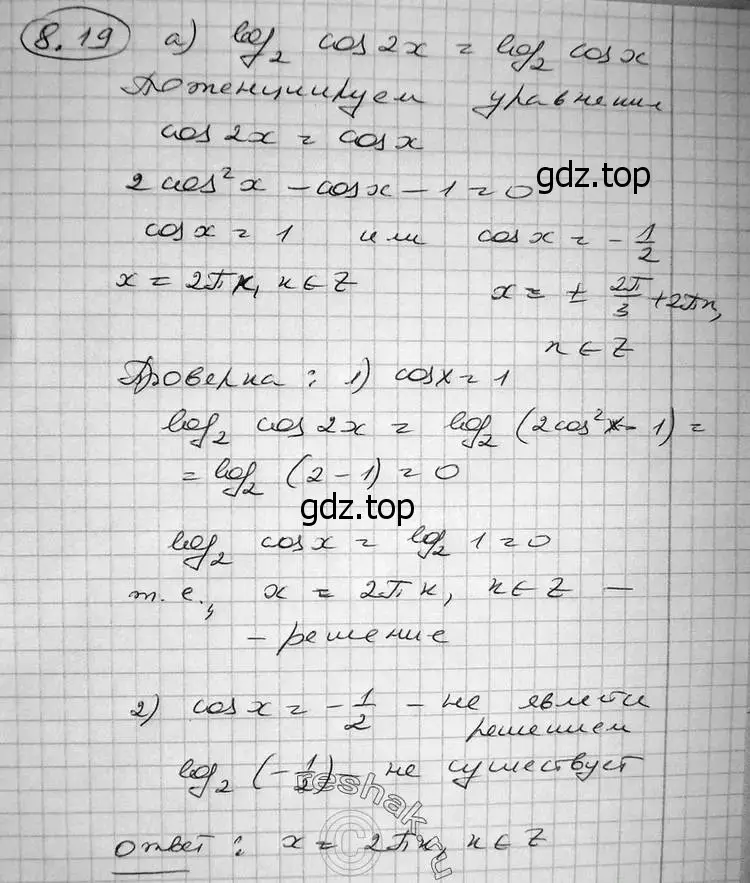 8.19 a) log₂ cos 2x = log₂ cos x
Потенциируем уравнение
cos 2x = cos x
2 cos²x - cos x - 1 = 0 gdz.top
cos x = 1 или cos x = - 1/2
x = 2πк, к ∈ Z x = ± 2π/3 + 2πn,
n ∈ Z
Проверка: 1) cos x = 1
log₂ cos 2x = log₂ (2cos²x - 1) =
= log₂ (2 - 1) = 0
gdz.top
log₂ cos x = log₂ 1 = 0
т. е., x = 2πк, к ∈ Z —
- решение
2) cos x = - 1/2 - не являтся
решением
log₂ (- 1/2) - не существует
reshak.ru
Ответ: x = 2πк, к ∈ Z